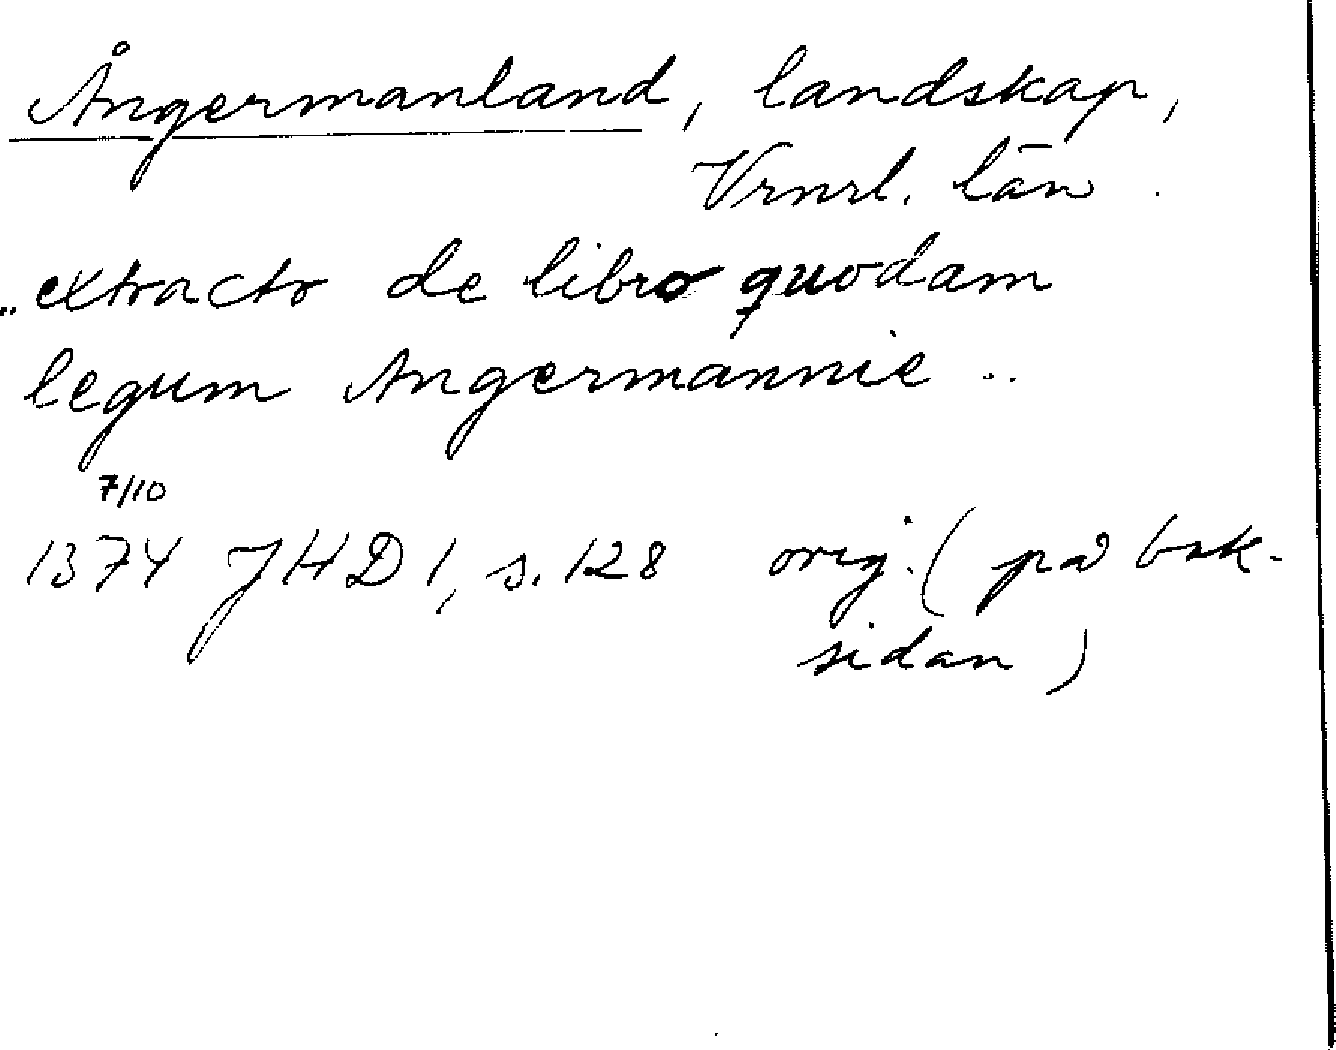 Ångermanland, landskap,
Vrnrl. län.
.. extracto de libro quodam
legum Angermannie ..
7/10
1374 JHD 1, s. 128 orig. (på bak-
sidan)